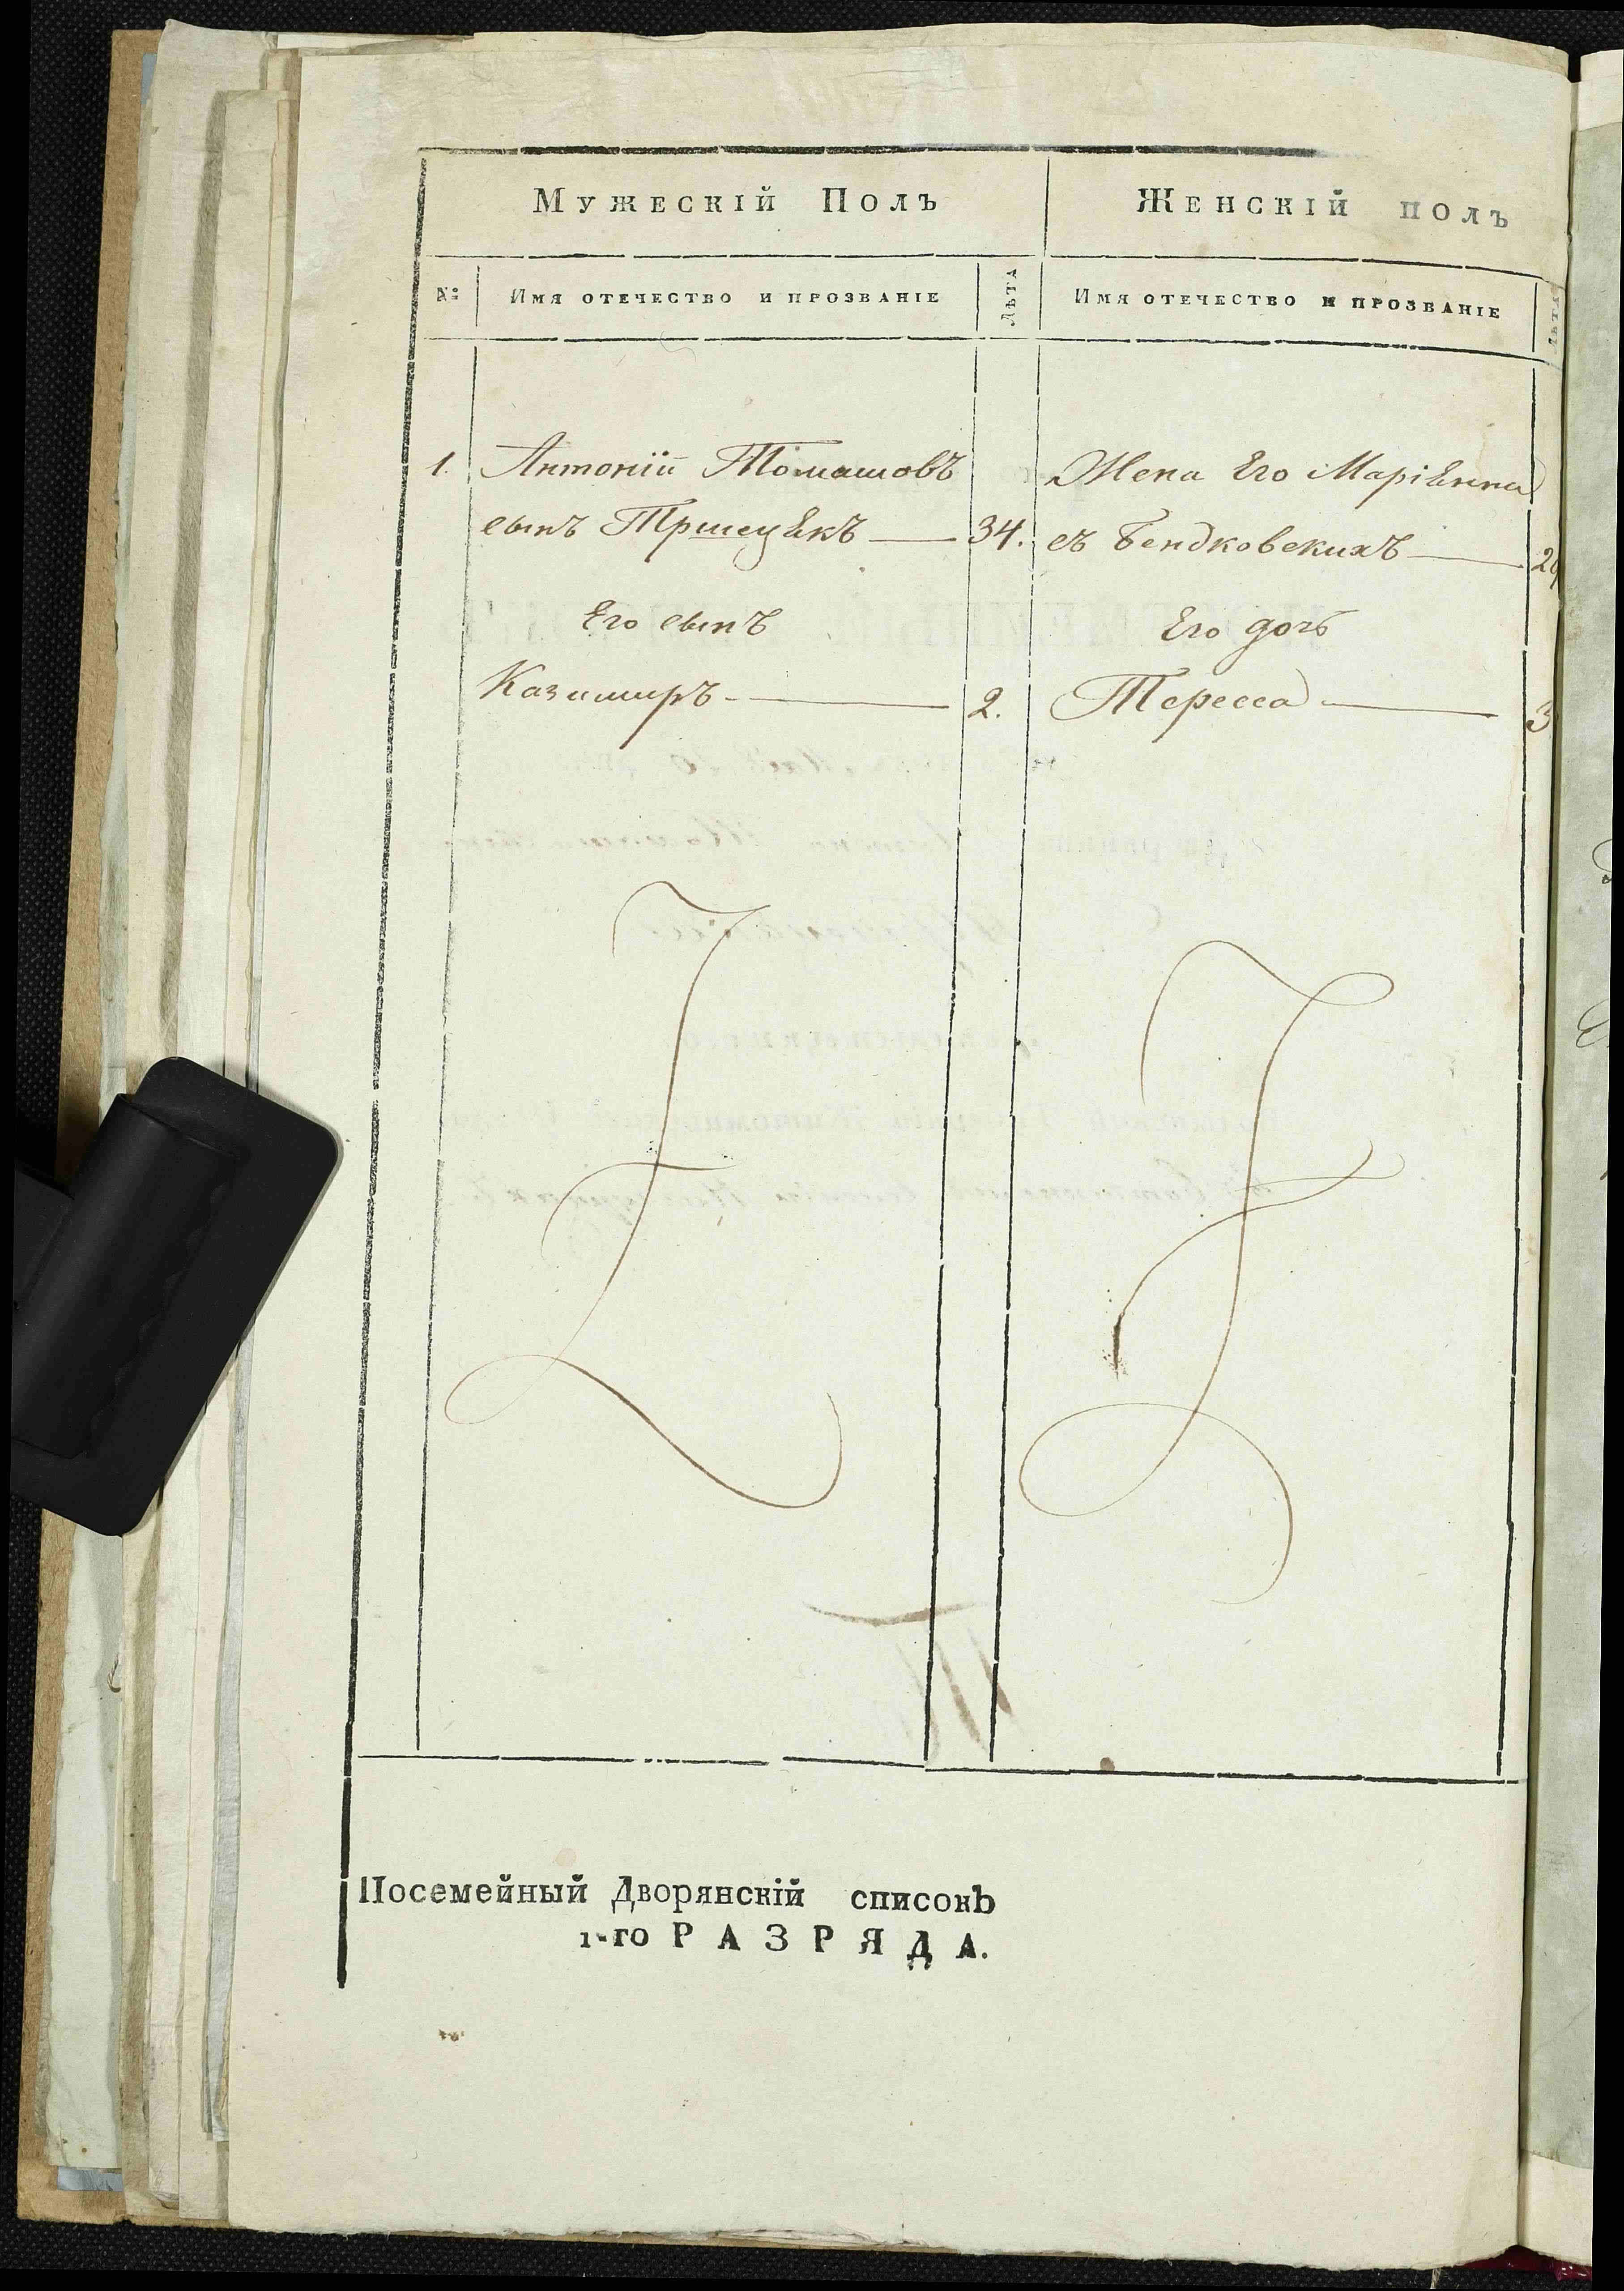 Мужескій Полъ
Женскій полъ
№ Имя отечество и прозваніе Лѣта
Имя отечество и прозваніе Лѣта
1. Антоній Томашовъ
сынъ Тршецѣкъ 34.
Его сынъ
Казимиръ 2.
Жена Его Маріѣнна
съ Бендковскихъ 29
Его дочь
Тересса 3
Посемейный Дворянскій списокъ
1-го РАЗРЯДА.